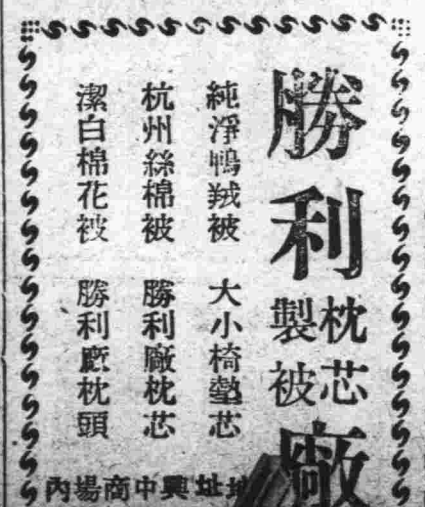 勝利枕芯製被廠
純淨鴨羢被 大小椅墊芯
杭州絲棉被 勝利廠枕芯
潔白棉花被 勝利廠枕頭
地址興中商場內